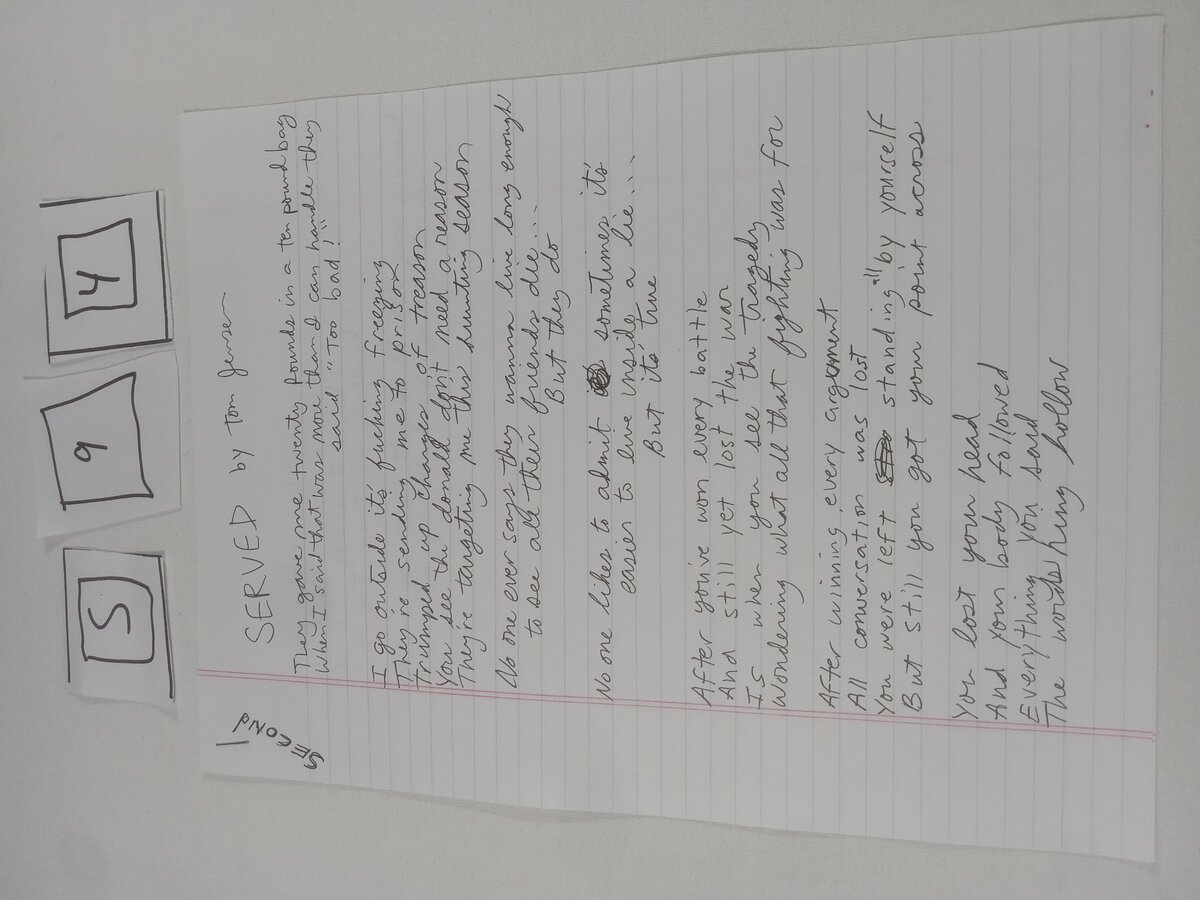 S
9
4
SECOND
SERVED by Tom Jensen
They gave me twenty pounds in a ten pound bag
When I said that was more than I can handle they
said "Too bad!"
I go outside it's fucking freezing
They're sending me to prison
Trumped up charges of treason
You see the donald don't need a reason
They're targeting me this hunting season
No one ever says they wanna live long enough
to see all their friends die....
But they do
No one likes to admit sometimes it's
easier to live inside a lie....
But it's true
After you've won every battle
And still yet lost the war
Is when you see the tragedy
Wondering what all that fighting was for
After winning every argument
All conversation was lost
You were left standing "by yourself
But still you got your point across
You lost your head
And your body followed
Everything you said
The words hring hollow